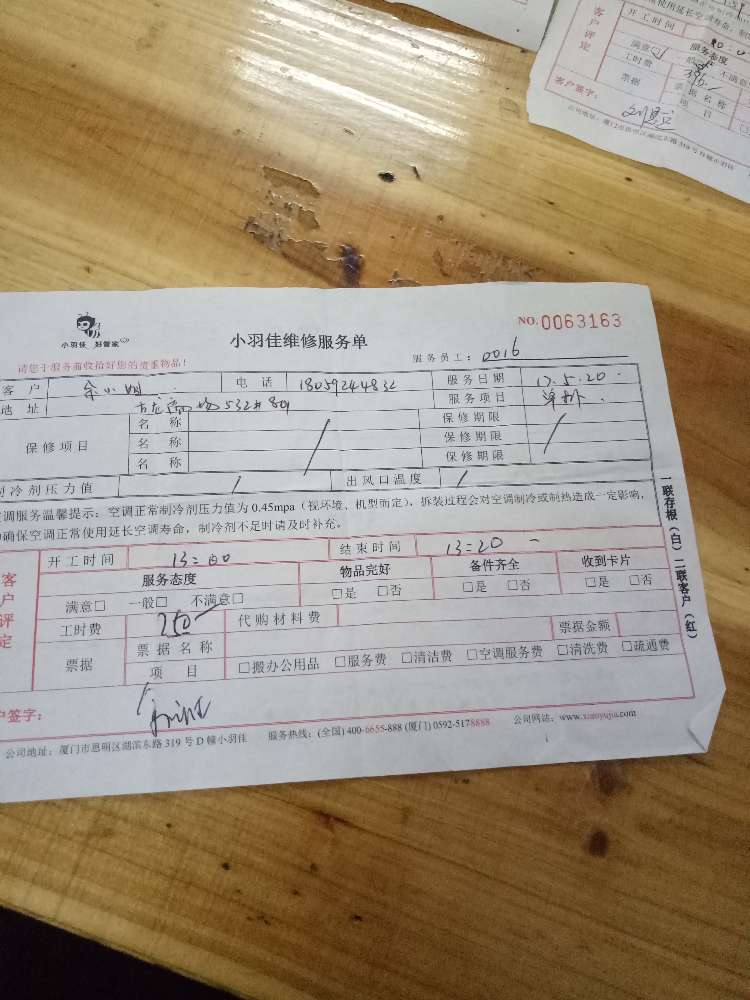 户
客
开工时间
使用延长空调寿命
评
定
满意□
服务态度
不满意
工时费
票据
票据名称
项目
客户签字：
小羽佳 好管家
小羽佳维修服务单
NO.0063163
请您于服务前收拾好您的贵重物品！
服务员工：0016
客户 电话 18059244832 服务日期 17.5.20.
地址 532# 801 服务项目
保修项目 名称 保修期限
名称 保修期限
名称 保修期限
制冷剂压力值 出风口温度
调服务温馨提示：空调正常制冷剂压力值为 0.45mpa（视环境、机型而定），拆装过程会对空调制冷或制热造成一定影响，
确保空调正常使用延长空调寿命，制冷剂不足时请及时补充。
客户评定
开工时间 13:00 结束时间 13:20
服务态度 物品完好 备件齐全 收到卡片
满意□ 一般□ 不满意□ □是 □否 □是 □否 □是 □否
工时费 250 代购材料费
票据 票据名称 票据金额
项目 □搬办公用品 □服务费 □清洁费 □空调服务费 □清洗费 □疏通费
户签字：
公司地址：厦门市思明区湖滨东路 319 号 D 幢小羽佳 服务热线：(全国) 400-6655-888 (厦门) 0592-5178888 公司网站：www.xiaoyujia.com
一联存根（白）二联客户（红）